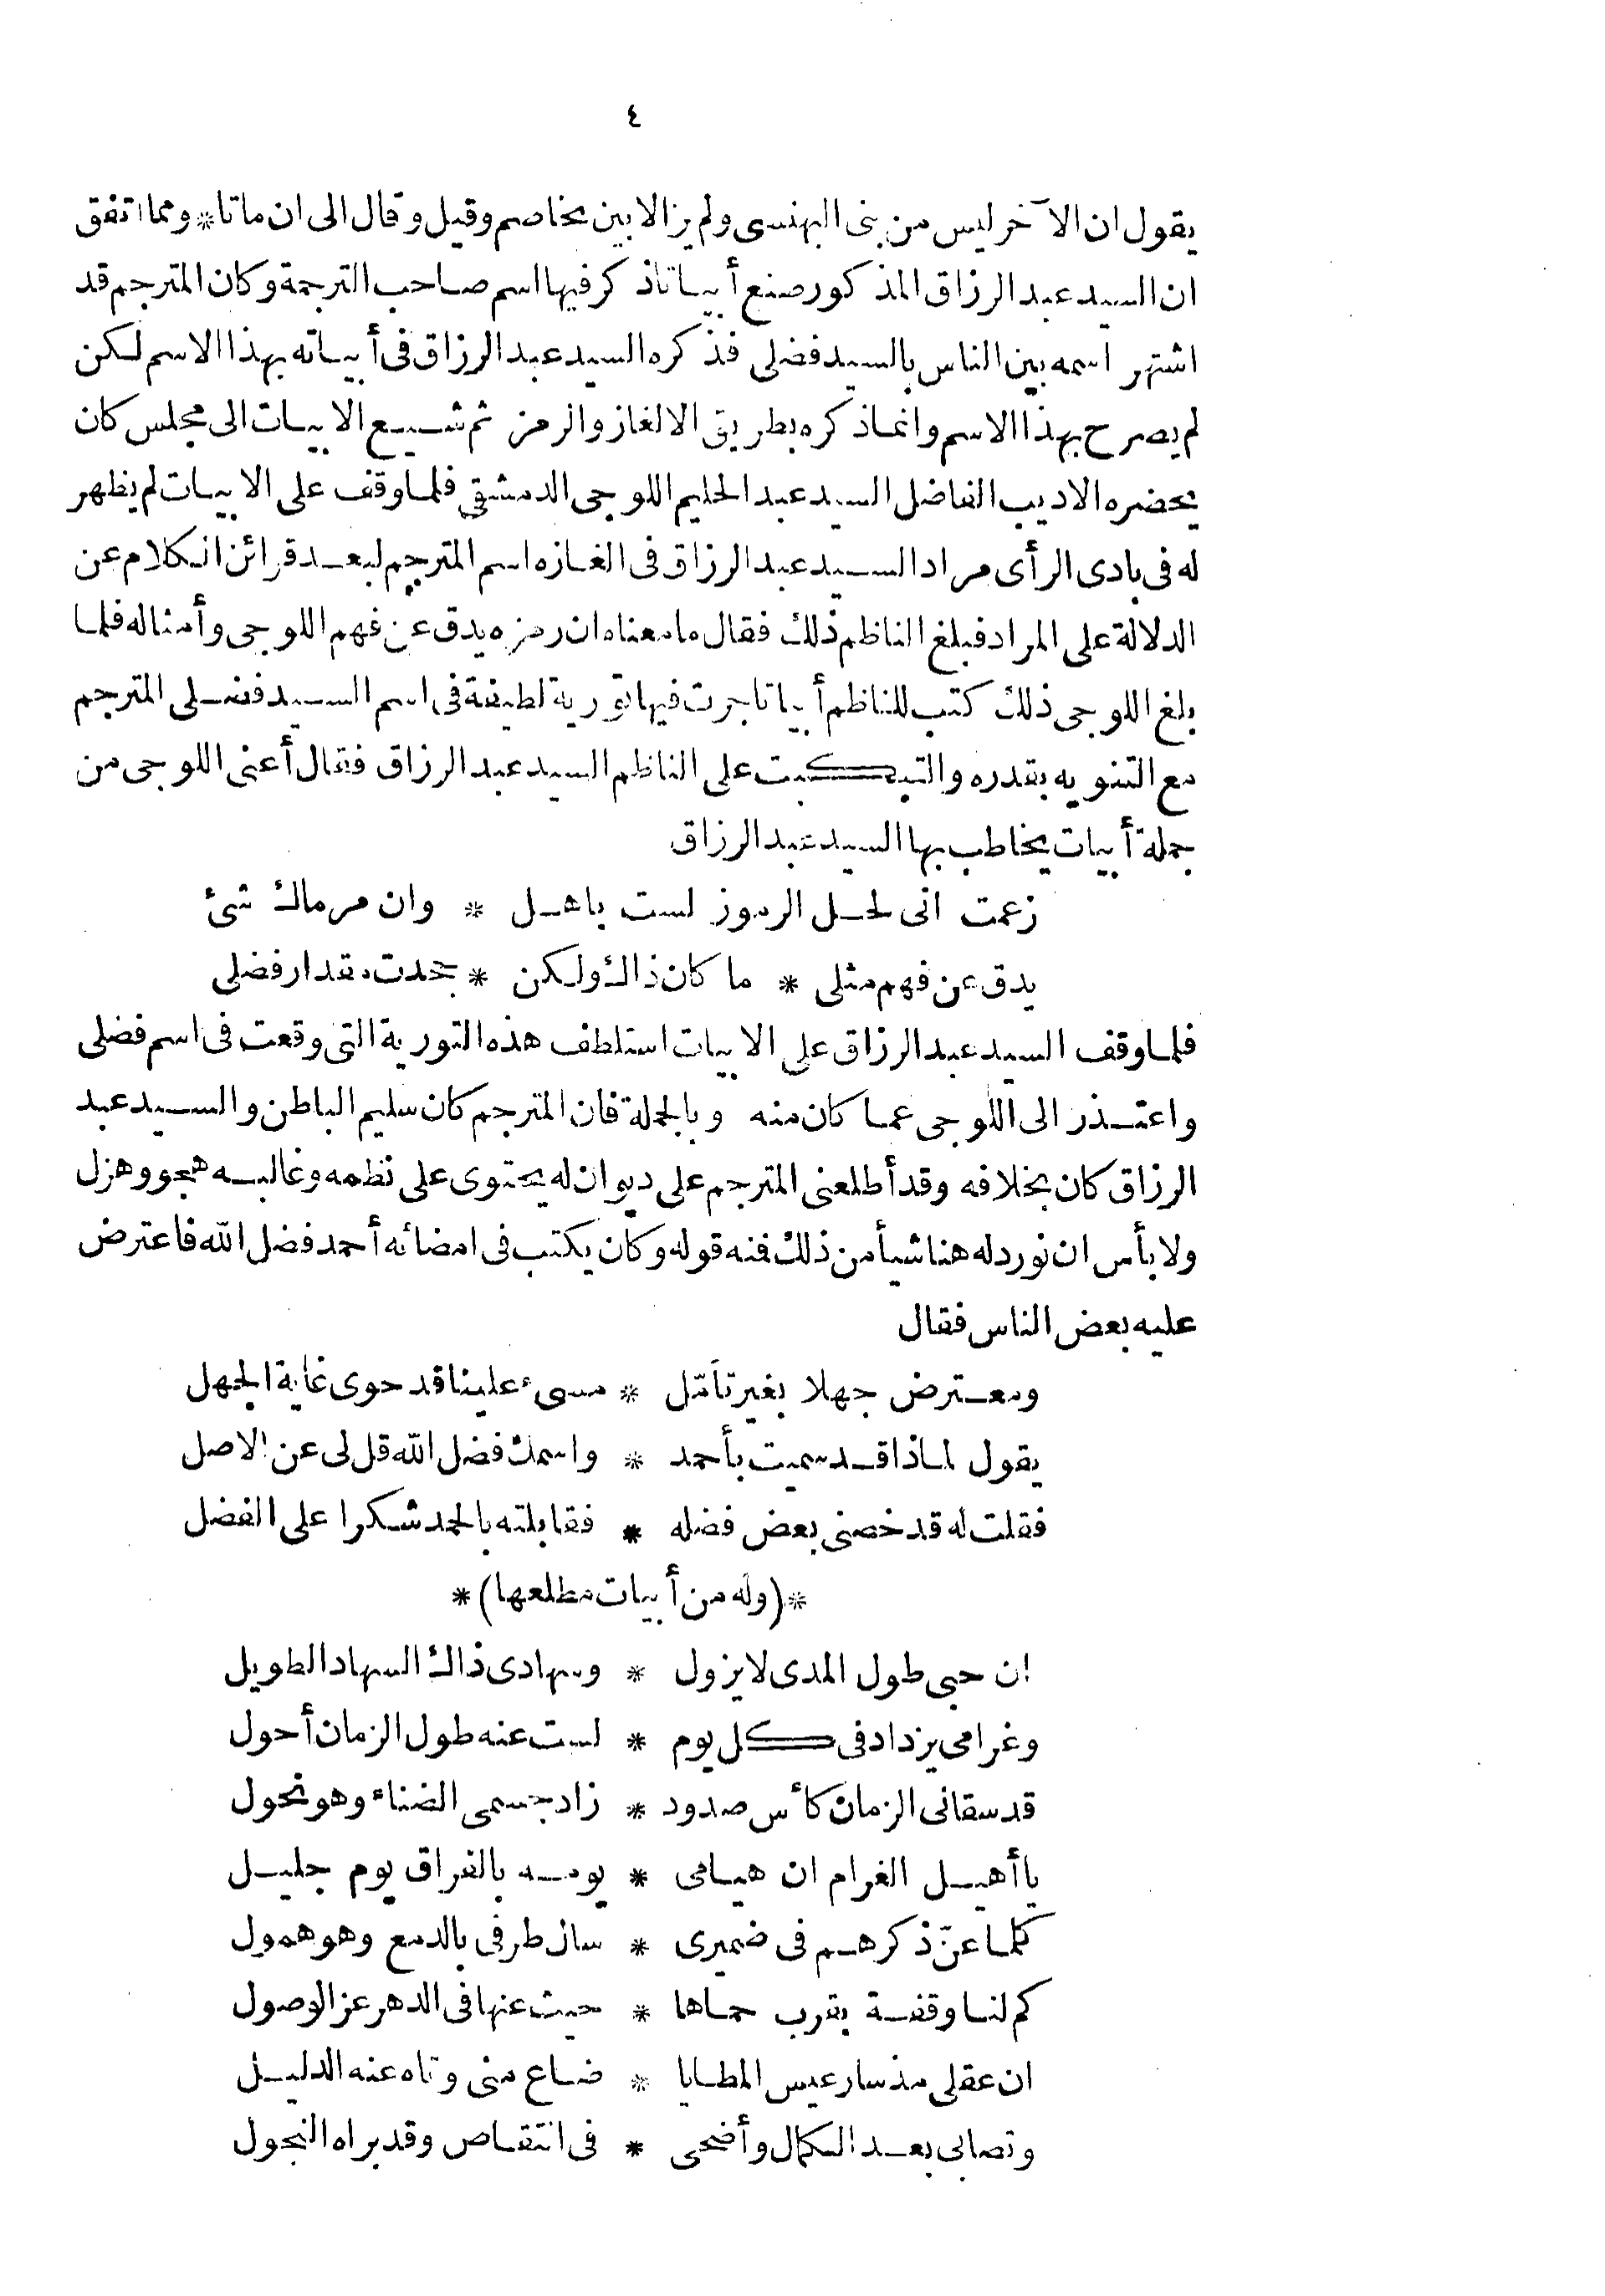 ٤
يقول ان الآخر ليس من بنى البهنسى ولم يزالا بين تخاصم وقيل وقال الى ان ماتا * ومما اتفق
ان السيد عبد الرزاق المذكور صنع أبياتا ذكر فيها اسم صاحب الترجمة وكان المترجم قد
اشتهر اسمه بين الناس بالسيد فضلى فذكره السيد عبد الرزاق فى أبياته بهذا الاسم لكن
لم يصرح بهذا الاسم وانما ذكره بطريق الالغاز والرمز ثم شيع الابيات الى مجلس كان
يحضره الاديب الفاضل السيد عبد الحليم اللوجى الدمشقى فلما وقف على الابيات لم يظهر
له فى بادى الرأى مراد السيد عبد الرزاق فى الغازه اسم المترجم لبعد قرائن الكلام عن
الدلالة على المراد فبلغ الناظم ذلك فقال ما معناه ان رمزه يدق عن فهم اللوجى وأمثاله فلما
بلغ اللوجى ذلك كتب للناظم أبياتا جرت فيها تورية لطيفة فى اسم السيد فضلى المترجم
مع التنويه بقدره والتبكيت على الناظم السيد عبد الرزاق فقال أعنى اللوجى من
جملة أبيات يخاطب بها السيد عبد الرزاق
زعمت انى لحل الرموز لست باهل * وان مرماك شئ
يدق عن فهم مثلى * ما كان ذاك ولكن * جحدت مقدار فضلى
فلما وقف السيد عبد الرزاق على الابيات استلطف هذه التورية التى وقعت فى اسم فضلى
واعتذر الى اللوجى عما كان منه وبالجملة فان المترجم كان سليم الباطن والسيد عبد
الرزاق كان بخلافه وقد أطلعنى المترجم على ديوان له يحتوى على نظمه وغالبه هجو وهزل
ولا بأس ان نورد له هنا شيأ من ذلك فمنه قوله وكان يكتب فى امضائه أحمد فضل الله فاعترض
عليه بعض الناس فقال
ومعترض جهلا بغير تأمّل * مسىء علينا قد حوى غاية الجهل
يقول لماذا قد سميت بأحمد * واسمك فضل الله قل لى عن الاصل
فقلت له قد خصنى بعض فضله * فقابلته بالحمد شكرا على الفضل
*(وله من أبيات مطلعها)*
ان حبى طول المدى لا يزول * وسهادى ذاك السهاد الطويل
وغرامى يزداد فى كل يوم * لست عنه طول الزمان أحول
قد سقانى الزمان كأس صدود * زاد جسمى الضناء وهو نحول
يا أهيل الغرام ان هيامى * يومه بالفراق يوم جليل
كلما عنّ ذكرهم فى ضميرى * سال طرفى بالدمع وهو همول
كم لنا وقفة بقرب حماها * حيث عنها فى الدهر عز الوصول
ان عقلى مذ سار عيس المطايا * ضاع منى وتاه عنه الدليل
وتصابى بعد الكمال وأضحى * فى انتقاص وقد براه النحول